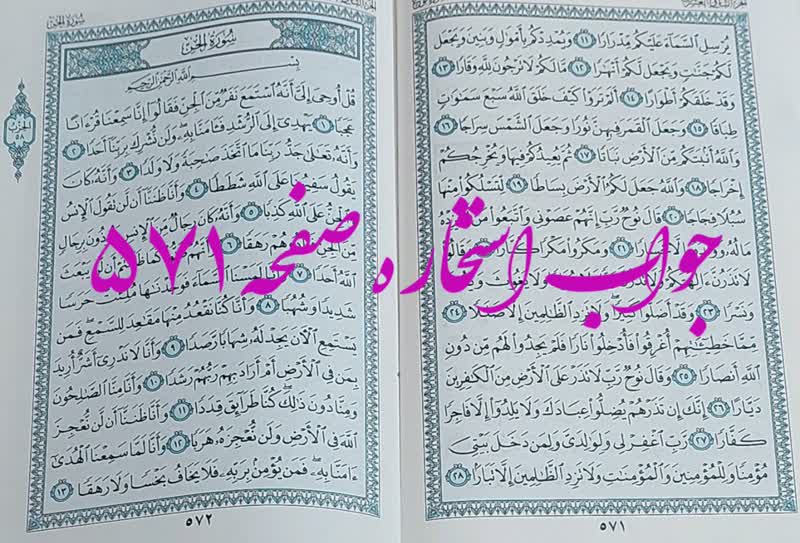 الجزء التاسع والعشرون
يُرْسِلِ السَّمَاءَ عَلَيْكُم مِّدْرَارًا ١١ وَيُمْدِدْكُم بِأَمْوَالٍ وَبَنِينَ وَيَجْعَل
لَّكُمْ جَنَّاتٍ وَيَجْعَل لَّكُمْ أَنْهَارًا ١٢ مَّا لَكُمْ لَا تَرْجُونَ لِلَّهِ وَقَارًا ١٣
وَقَدْ خَلَقَكُمْ أَطْوَارًا ١٤ أَلَمْ تَرَوْا كَيْفَ خَلَقَ اللَّهُ سَبْعَ سَمَاوَاتٍ
طِبَاقًا ١٥ وَجَعَلَ الْقَمَرَ فِيهِنَّ نُورًا وَجَعَلَ الشَّمْسَ سِرَاجًا ١٦
وَاللَّهُ أَنبَتَكُم مِّنَ الْأَرْضِ نَبَاتًا ١٧ ثُمَّ يُعِيدُكُمْ فِيهَا وَيُخْرِجُكُمْ
إِخْرَاجًا ١٨ وَاللَّهُ جَعَلَ لَكُمُ الْأَرْضَ بِسَاطًا ١٩ لِّتَسْلُكُوا مِنْهَا
سُبُلًا فِجَاجًا ٢٠ قَالَ نُوحٌ رَّبِّ إِنَّهُمْ عَصَوْنِي وَاتَّبَعُوا مَن
مَالُهُ ٢١ وَمَكَرُوا مَكْرًا كُبَّارًا
لَا تَذَرُنَّ آلِهَتَكُمْ وَلَا يَغُوثَ
وَنَسْرًا ٢٣ وَقَدْ أَضَلُّوا كَثِيرًا وَلَا تَزِدِ الظَّالِمِينَ إِلَّا ضَلَالًا ٢٤
مِّمَّا خَطِيئَاتِهِمْ أُغْرِقُوا فَأُدْخِلُوا نَارًا فَلَمْ يَجِدُوا لَهُم مِّن دُونِ
اللَّهِ أَنصَارًا ٢٥ وَقَالَ نُوحٌ رَّبِّ لَا تَذَرْ عَلَى الْأَرْضِ مِنَ الْكَافِرِينَ
دَيَّارًا ٢٦ إِنَّكَ إِن تَذَرْهُمْ يُضِلُّوا عِبَادَكَ وَلَا يَلِدُوا إِلَّا فَاجِرًا
كَفَّارًا ٢٧ رَّبِّ اغْفِرْ لِي وَلِوَالِدَيَّ وَلِمَن دَخَلَ بَيْتِيَ
مُؤْمِنًا وَلِلْمُؤْمِنِينَ وَالْمُؤْمِنَاتِ وَلَا تَزِدِ الظَّالِمِينَ إِلَّا تَبَارًا ٢٨
٥٧١
سُورَةُ الْجِنِّ
سُورَةُ الْجِنِّ
بِسْمِ اللَّهِ الرَّحْمَٰنِ الرَّحِيمِ
الحزب ٥٨
قُلْ أُوحِيَ إِلَيَّ أَنَّهُ اسْتَمَعَ نَفَرٌ مِّنَ الْجِنِّ فَقَالُوا إِنَّا سَمِعْنَا قُرْآنًا
عَجَبًا ١ يَهْدِي إِلَى الرُّشْدِ فَآمَنَّا بِهِ وَلَن نُّشْرِكَ بِرَبِّنَا أَحَدًا ٢
وَأَنَّهُ تَعَالَىٰ جَدُّ رَبِّنَا مَا اتَّخَذَ صَاحِبَةً وَلَا وَلَدًا ٣ وَأَنَّهُ كَانَ
يَقُولُ سَفِيهُنَا عَلَى اللَّهِ شَطَطًا ٤ وَأَنَّا ظَنَنَّا أَن لَّن تَقُولَ الْإِنسُ
وَالْجِنُّ عَلَى اللَّهِ كَذِبًا ٥ وَأَنَّهُ كَانَ رِجَالٌ مِّنَ الْإِنسِ يَعُوذُونَ بِرِجَالٍ
مِّنَ الْجِنِّ فَزَادُوهُمْ رَهَقًا ٦ وَأَنَّهُمْ ظَنُّوا كَمَا ظَنَنتُمْ أَن لَّن يَبْعَثَ
اللَّهُ أَحَدًا ٧ وَأَنَّا لَمَسْنَا السَّمَاءَ فَوَجَدْنَاهَا مُلِئَتْ حَرَسًا
شَدِيدًا وَشُهُبًا ٨ وَأَنَّا كُنَّا نَقْعُدُ مِنْهَا مَقَاعِدَ لِلسَّمْعِ فَمَن
يَسْتَمِعِ الْآنَ يَجِدْ لَهُ شِهَابًا رَّصَدًا ٩ وَأَنَّا لَا نَدْرِي أَشَرٌّ أُرِيدَ
بِمَن فِي الْأَرْضِ أَمْ أَرَادَ بِهِمْ رَبُّهُمْ رَشَدًا ١٠ وَأَنَّا مِنَّا الصَّالِحُونَ
وَمِنَّا دُونَ ذَٰلِكَ كُنَّا طَرَائِقَ قِدَدًا ١١ وَأَنَّا ظَنَنَّا أَن لَّن نُّعْجِزَ
اللَّهَ فِي الْأَرْضِ وَلَن نُّعْجِزَهُ هَرَبًا ١٢ وَأَنَّا لَمَّا سَمِعْنَا الْهُدَىٰ
آمَنَّا بِهِ فَمَن يُؤْمِن بِرَبِّهِ فَلَا يَخَافُ بَخْسًا وَلَا رَهَقًا ١٣
٥٧٢
جواب استخاره صفحه ۵۷۱